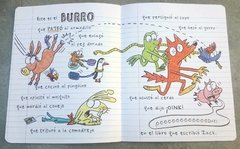 Este es el BURRO
que PATEÓ al armadillo
que enlazó
al pez dorado
que cocinó al pingüino
que aplastó al mosquito
que mordió al conejo
que trituró a la comadreja
que persiguió al sapo
que besó al zorro
que asustó al cerdo
que dijo ¡OINK!
en el libro que escribió Jack.